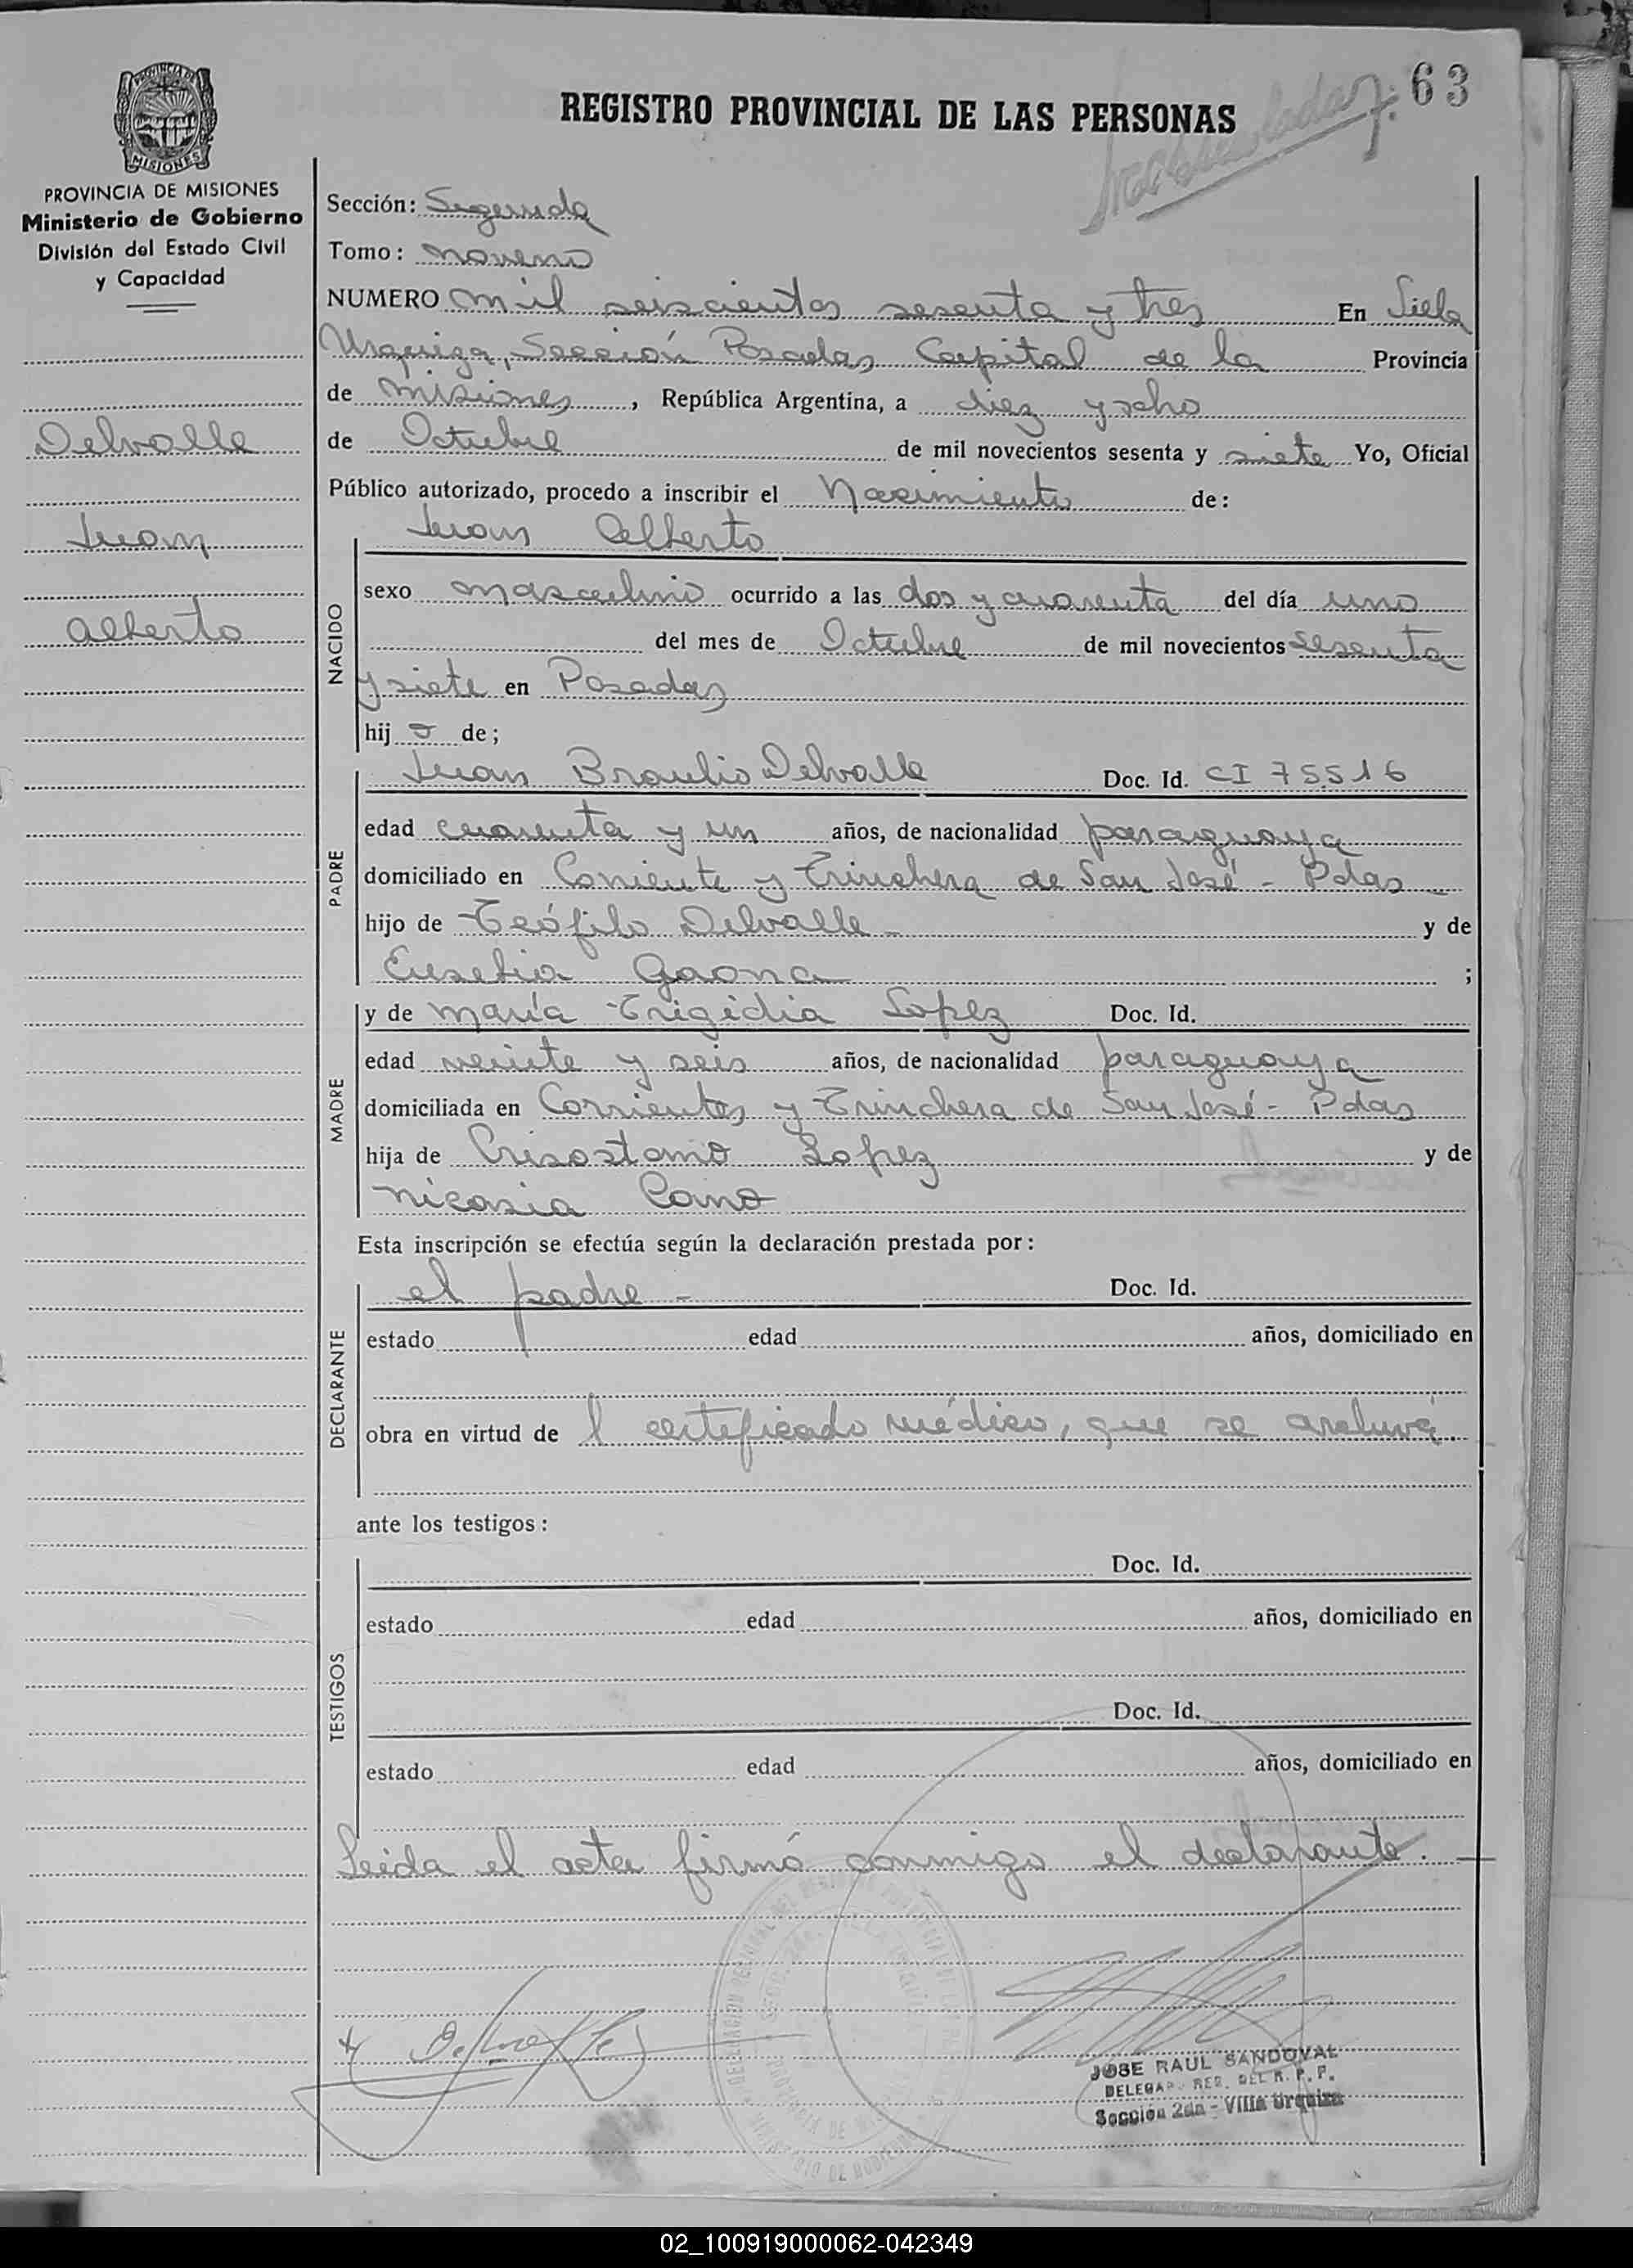 63
REGISTRO PROVINCIAL DE LAS PERSONAS
PROVINCIA DE MISIONES
Ministerio de Gobierno
División del Estado Civil
y Capacidad
Delvalle
Juan
Alberto
Sección: Segunda
Tomo: noveno
NUMERO mil seiscientos sesenta y tres En Villa
Urquiza, Sección Posadas, Capital de la Provincia
de Misiones, República Argentina, a diez y ocho
de Octubre de mil novecientos sesenta y siete Yo, Oficial
Público autorizado, procedo a inscribir el Nacimiento de:
Juan Alberto
NACIDO
sexo masculino ocurrido a las dos y cuarenta del día uno
del mes de Octubre de mil novecientos sesenta
y siete en Posadas
hijo de;
PADRE
Juan Braulio Delvalle Doc. Id. CI 75516
edad cuarenta y un años, de nacionalidad paraguaya
domiciliado en Corriente y Trinchera de San José - Pdas
hijo de Teófilo Delvalle - y de
Eusebia Gaona ;
MADRE
y de María Trigidia Lopez Doc. Id.
edad veinte y seis años, de nacionalidad paraguaya
domiciliada en Corrientes y Trinchera de San José - Pdas
hija de Crisostomo Lopez y de
Nicasia Cano
Esta inscripción se efectúa según la declaración prestada por:
DECLARANTE
el padre - Doc. Id.
estado edad años, domiciliado en
obra en virtud de l certificado médico, que se archiva.
ante los testigos:
TESTIGOS
Doc. Id.
estado edad años, domiciliado en
Doc. Id.
estado edad años, domiciliado en
Leida el acta firmó conmigo el declarante.
Delvalle
JOSE RAUL SANDOVAL
DELEGADO REG. DEL R. P. P.
Sección 2da - Villa Urquiza
02_100919000062-042349